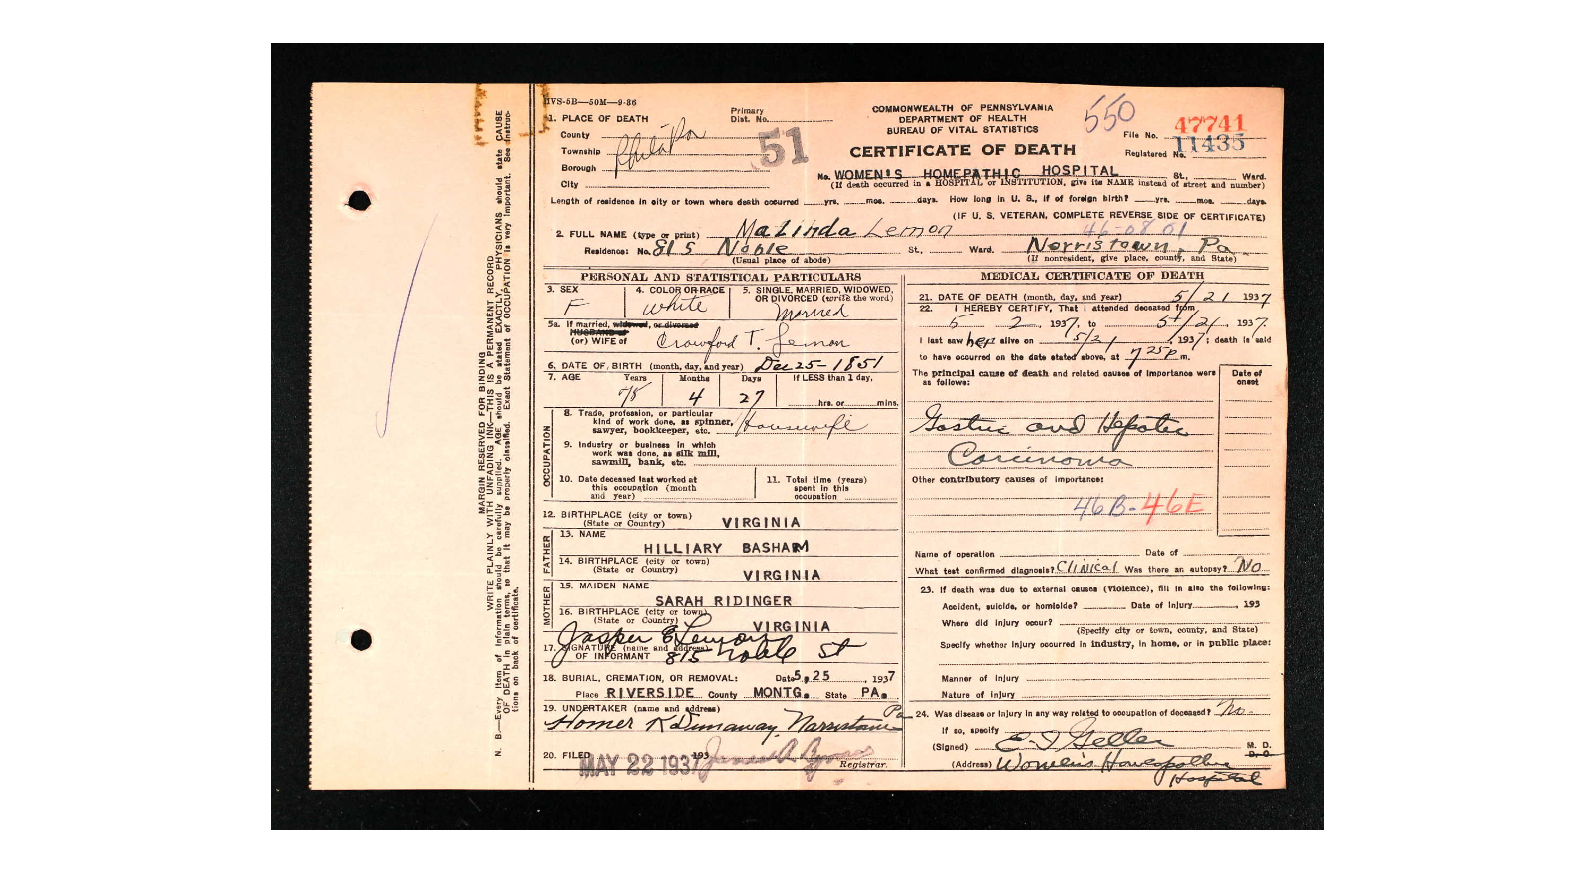 HVS-5B—50M—9-36
COMMONWEALTH OF PENNSYLVANIA
DEPARTMENT OF HEALTH
BUREAU OF VITAL STATISTICS
CERTIFICATE OF DEATH
550
File No. 47741
Registered No. 11435
Primary
Dist. No.
51
1. PLACE OF DEATH
County
Township
Borough
City
Phila Pa
No. WOMEN'S HOMEPATHIC HOSPITAL St., Ward.
(If death occurred in a HOSPITAL or INSTITUTION, give its NAME instead of street and number)
Length of residence in city or town where death occurred yrs. mos. days. How long in U. S., if of foreign birth? yrs. mos. days.
(IF U. S. VETERAN, COMPLETE REVERSE SIDE OF CERTIFICATE)
46-08 01
2. FULL NAME (type or print) Malinda Lemon
Residence: No. 815 Noble St., Ward. Norristown, Pa
(Usual place of abode) (If nonresident, give place, county, and State)
PERSONAL AND STATISTICAL PARTICULARS
3. SEX
F
4. COLOR OR RACE
White
5. SINGLE, MARRIED, WIDOWED,
OR DIVORCED (write the word)
Married
5a. If married, widowed, or divorced
HUSBAND of
(or) WIFE of Crawford T. Lemon
6. DATE OF BIRTH (month, day, and year) Dec 25-1851
7. AGE Years Months Days If LESS than 1 day,
4 27 hrs. or mins.
OCCUPATION
8. Trade, profession, or particular
kind of work done, as spinner,
sawyer, bookkeeper, etc. Housewife
9. Industry or business in which
work was done, as silk mill,
sawmill, bank, etc.
10. Date deceased last worked at
this occupation (month
and year)
11. Total time (years)
spent in this
occupation
12. BIRTHPLACE (city or town)
(State or Country) VIRGINIA
FATHER
13. NAME
HILLIARY BASHAM
14. BIRTHPLACE (city or town)
(State or Country) VIRGINIA
MOTHER
15. MAIDEN NAME
SARAH RIDINGER
16. BIRTHPLACE (city or town)
(State or Country) VIRGINIA
Jasper E Lemon
17. SIGNATURE (name and address)
OF INFORMANT 815 Noble St
18. BURIAL, CREMATION, OR REMOVAL: Date 5.25, 1937
Place RIVERSIDE County MONTG. State PA.
19. UNDERTAKER (name and address)
Homer K Dunaway, Norristown Pa
20. FILED MAY 22 1937 193
Registrar.
MEDICAL CERTIFICATE OF DEATH
21. DATE OF DEATH (month, day, and year) 5/21 1937
22. I HEREBY CERTIFY, That I attended deceased from
5 2, 1937, to 5/21, 1937.
I last saw her alive on 5/21, 1937; death is said
to have occurred on the date stated above, at 7 25 p m.
The principal cause of death and related causes of importance were
as follows:
Date of
onset
Gastric and Hepatic
Carcinoma
Other contributory causes of importance:
46B-46E
Name of operation Date of
What test confirmed diagnosis? Clinical Was there an autopsy? No
23. If death was due to external causes (violence), fill in also the following:
Accident, suicide, or homicide? Date of injury, 193
Where did injury occur?
(Specify city or town, county, and State)
Specify whether injury occurred in industry, in home, or in public place:
Manner of injury
Nature of injury
24. Was disease or injury in any way related to occupation of deceased? No.
If so, specify
(Signed) E. I Geller M. D.
D. O
(Address) Women's Homeopathic
Hospital
MARGIN RESERVED FOR BINDING
WRITE PLAINLY WITH UNFADING INK—THIS IS A PERMANENT RECORD
N. B.—Every item of information should be carefully supplied. AGE should be stated EXACTLY. PHYSICIANS should state CAUSE
OF DEATH in plain terms, so that it may be properly classified. Exact Statement of OCCUPATION is very important. See instruc-
tions on back of certificate.